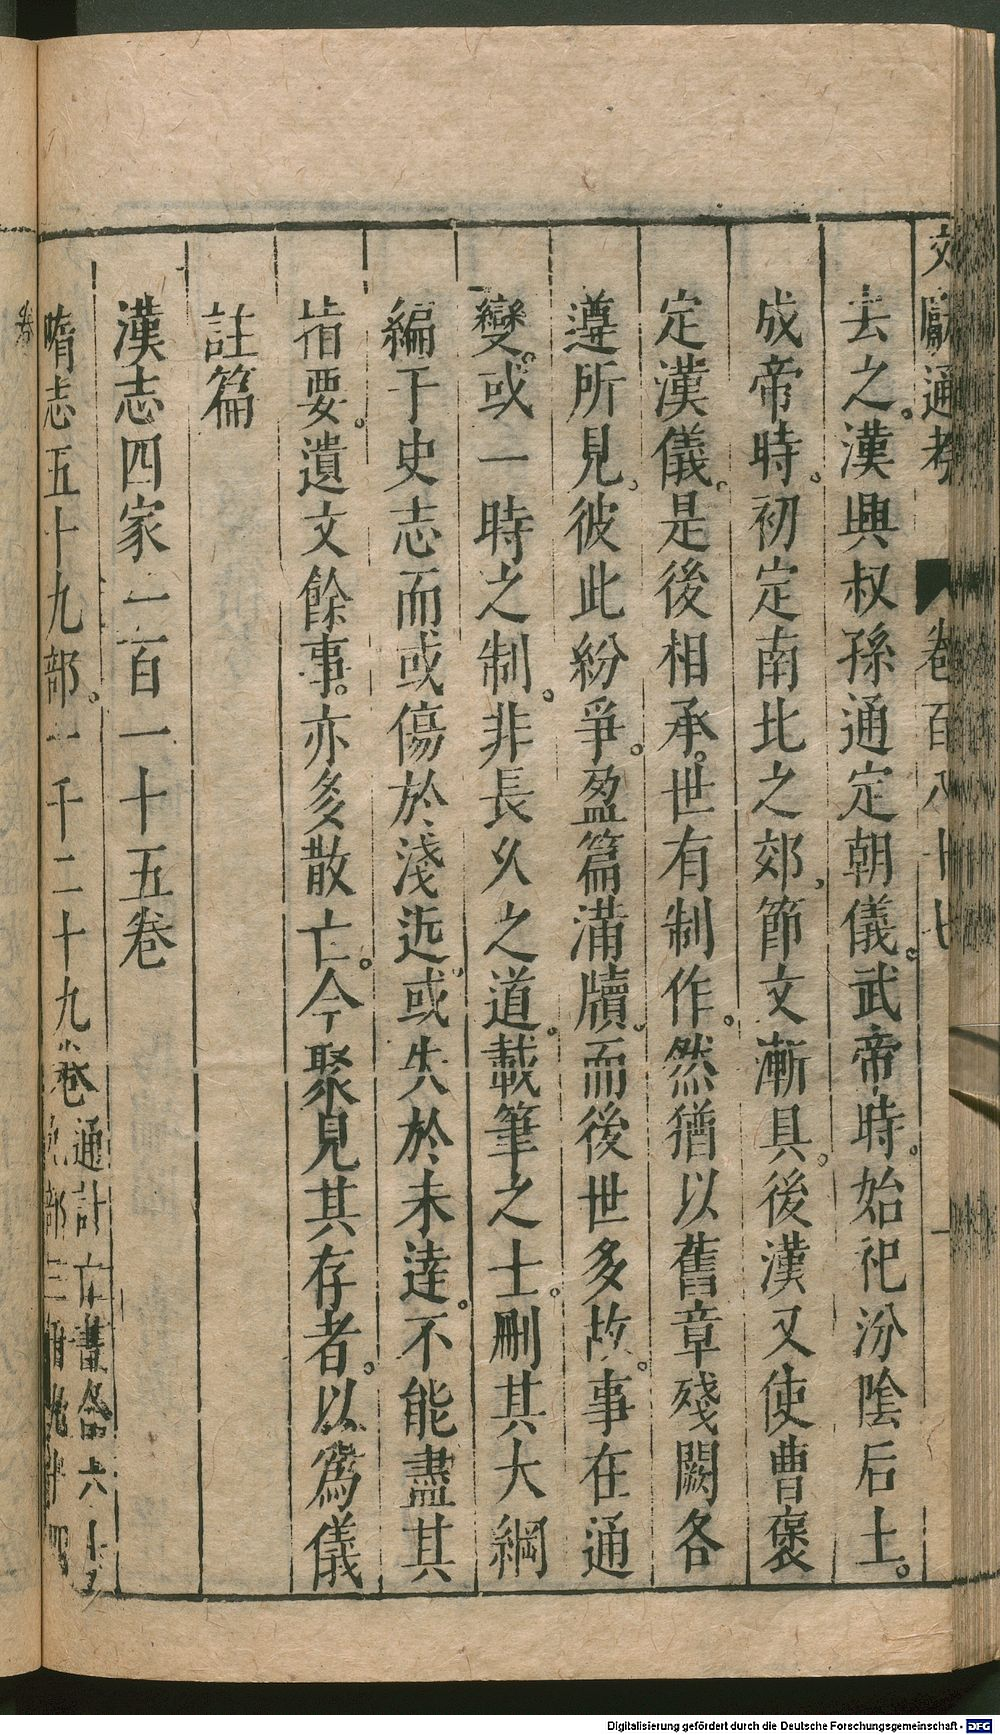 文獻通考 卷百八十七
去之。漢興叔孫通定朝儀。武帝時。始祀汾陰后土。
成帝時。初定南北之郊。節文漸具。後漢又使曹褒
定漢儀。是後相承。世有制作。然猶以舊章殘闕各
遵所見。彼此紛爭。盈篇滿牘。而後世多故。事在通
變。或一時之制。非長久之道。載筆之士。刪其大綱
編于史志而或傷於淺近。或失於未達。不能盡其
指要。遺文餘事。亦多散亡。今聚見其存者。以爲儀
註篇
漢志四家一百一十五卷
隋志五十九部。一千二十九卷 通計亡書合六十九
部三
Digitalisierung gefördert durch die Deutsche Forschungsgemeinschaft - DFG